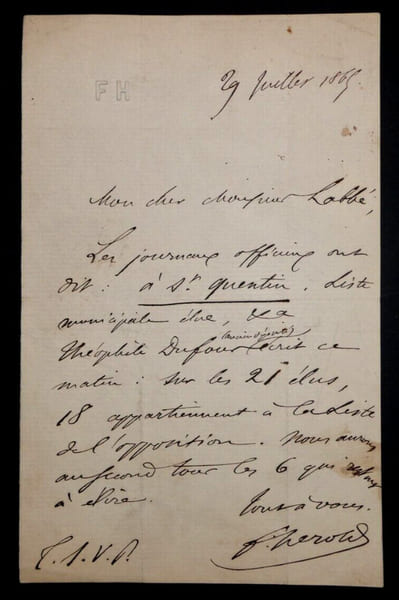 FH
29 Juillet 1865
Mon cher Monsieur Labbé,
Les journaux officieux ont
dit : à St. Quentin, Liste
municipale élue,
(ancien député)
Théophile Dufour écrit ce
matin : sur les 21 élus,
18 appartiennent à la Liste
de l'opposition. Nous aurons
au second tour les 6 qui
à élire.
Tout à vous.
T.S.V.P.
F. Herold